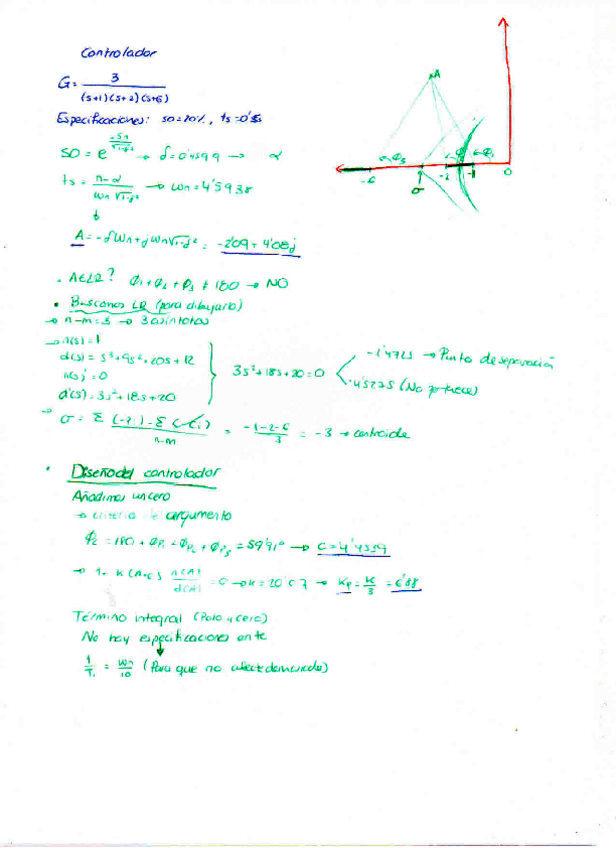 Controlador
G = 3 / (s+1)(s+2)(s+6)
Especificaciones: so=20%, ts=0'5s
SO = e^(-δπ/√(1-δ²)) → δ=0'4599 → α
ts = π-α / ωn √(1-δ²) → ωn = 4'5938
A = -δωn + jωn√(1-δ²) = -2'09 + 4'08j
A
-6
σ
-2
-1
0
φ3
φ1
. A∈LR? φ1+φ2+φ3 ≠ 180 → NO
• Buscamos LR (para dibujarlo)
→ n-m=3 → 3 asíntotas
→ n(s)=1
d(s) = s³+9s²+20s+12
n(s)' = 0
d'(s) = 3s²+18s+20
3s²+18s+20=0
-1'4725 → Punto de separación
-4'5275 (No pertenece)
→ σ = Σ(-pi) - Σ(-ci) / n-m = -1-2-6 / 3 = -3 → centroide
• Diseño del controlador
Añadimos un cero
→ criterio de argumento
φz = 180 + φp1 + φp2 + φp3 = 59'91° → c = 4'4559
→ 1+ K(A+c) n(A)/d(A) = 0 → K=20'67 → Kp = K/3 = 6'88
Término integral (Polo y cero)
No hay especificaciones en te
1/Ti = ωn/10 (Para que no afecte demasiado)